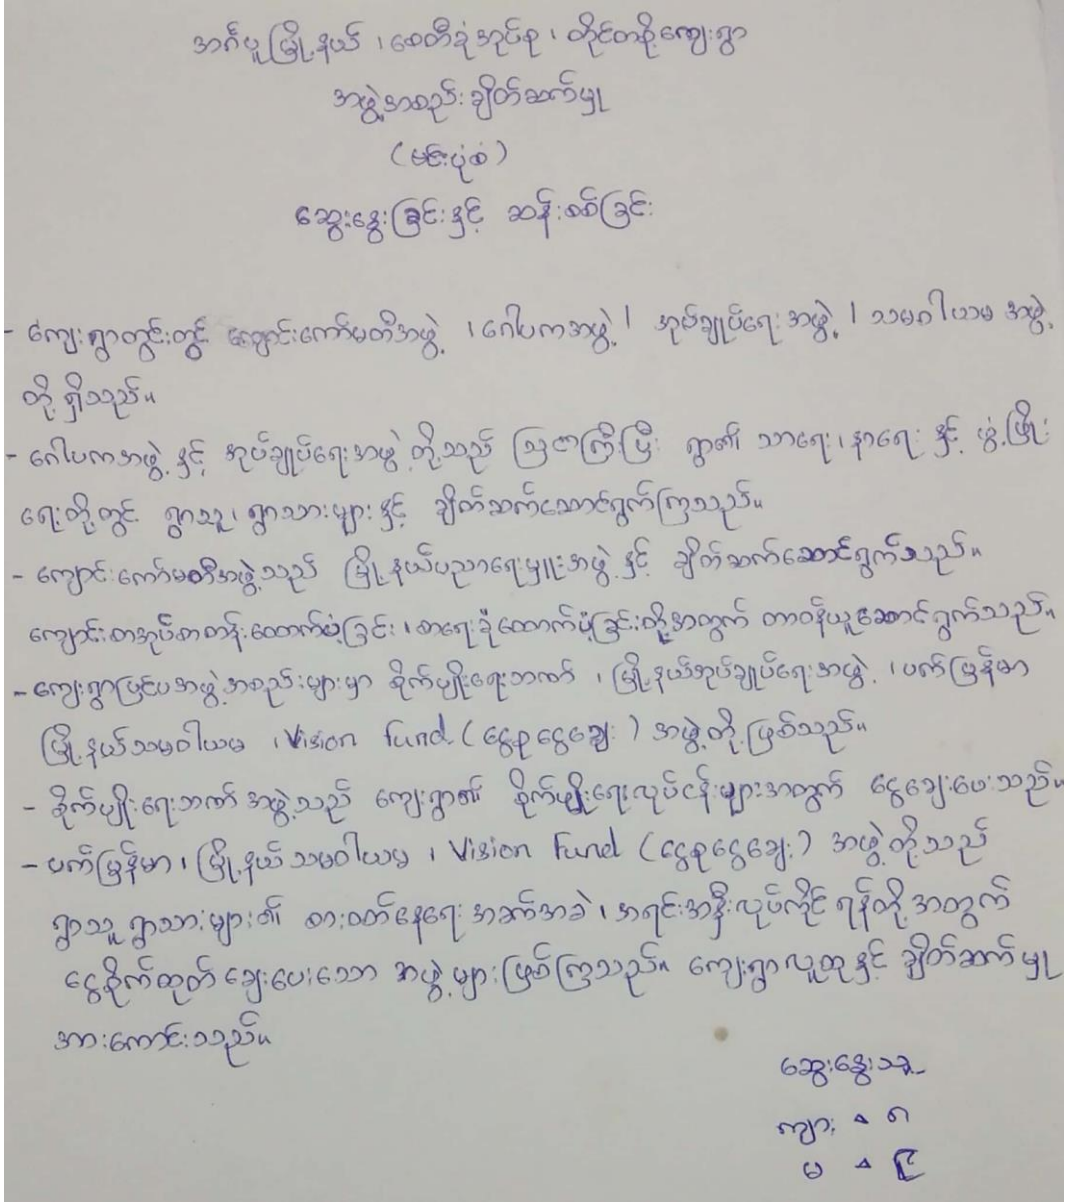 အင်္ဂပူမြို့နယ်၊ စေတီခုံအုပ်စု၊ တိုင်တစို့ကျေးရွာ
အဖွဲ့အစည်းချိတ်ဆက်မှု
(မင်းပုံစံ)
ဆွေးနွေးခြင်းနှင့် ဆန်းစစ်ခြင်း
- ကျေးရွာတွင်းတွင် ကျောင်းကော်မတီအဖွဲ့၊ ဂေါပကအဖွဲ့၊ အုပ်ချုပ်ရေးအဖွဲ့၊ သမဝါယမ အဖွဲ့
တို့ ရှိသည်။
- ဂေါပကအဖွဲ့ နှင့် အုပ်ချုပ်ရေးအဖွဲ့တို့သည် ဩဇာကြီးပြီး ရွာ၏ သာရေး၊ နာရေး နှင့် ဖွံ့ဖြိုး
ရေးတို့တွင် ရွာသူ၊ ရွာသားများနှင့် ချိတ်ဆက်ဆောင်ရွက်ကြသည်။
- ကျောင်းကော်မတီအဖွဲ့သည် မြို့နယ်ပညာရေးမှူးအဖွဲ့နှင့် ချိတ်ဆက်ဆောင်ရွက်သည်။
ကျောင်းစာအုပ်စာတန်းထောက်ပံ့ခြင်း၊ စာရေးခုံထောက်ပံ့ခြင်းတို့အတွက် တာဝန်ယူဆောင်ရွက်သည်။
- ကျေးရွာပြင်ပအဖွဲ့အစည်းများမှာ စိုက်ပျိုးရေးဘဏ်၊ မြို့နယ်အုပ်ချုပ်ရေးအဖွဲ့၊ ပက်မြန်မာ
မြို့နယ်သမဝါယမ၊ Vision Fund (ငွေစုငွေချေး) အဖွဲ့တို့ဖြစ်သည်။
- စိုက်ပျိုးရေးဘဏ်အဖွဲ့သည် ကျေးရွာ၏ စိုက်ပျိုးရေးလုပ်ငန်းများအတွက် ငွေချေးပေးသည်။
- ပက်မြန်မာ၊ မြို့နယ်သမဝါယမ၊ Vision Fund (ငွေစုငွေချေး) အဖွဲ့တို့သည်
ရွာသူရွာသားများ၏ စားဝတ်နေရေး အခက်အခဲ၊ အရင်းအနှီးလုပ်ကိုင်ရန်တို့အတွက်
ငွေစိုက်ထုတ်ချေးပေးသော အဖွဲ့များဖြစ်ကြသည်။ ကျေးရွာလူထုနှင့် ချိတ်ဆက်မှု
အားကောင်းသည်။
ဆွေးနွေးသူ
ကျား - ၈
မ - ၄